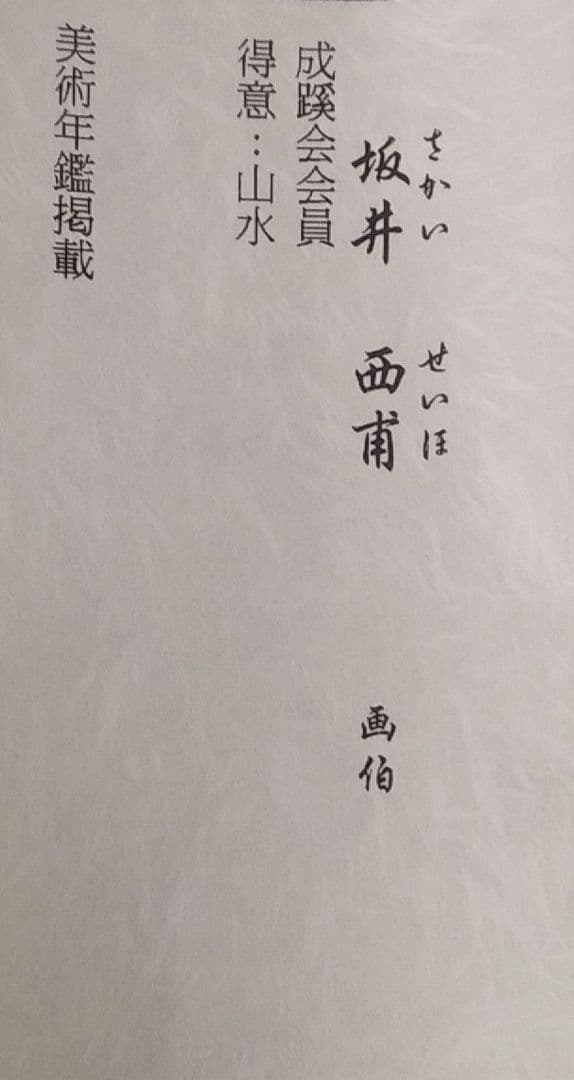 さかい せいほ
坂井 西甫 画伯
成蹊会会員
得意：山水
美術年鑑掲載